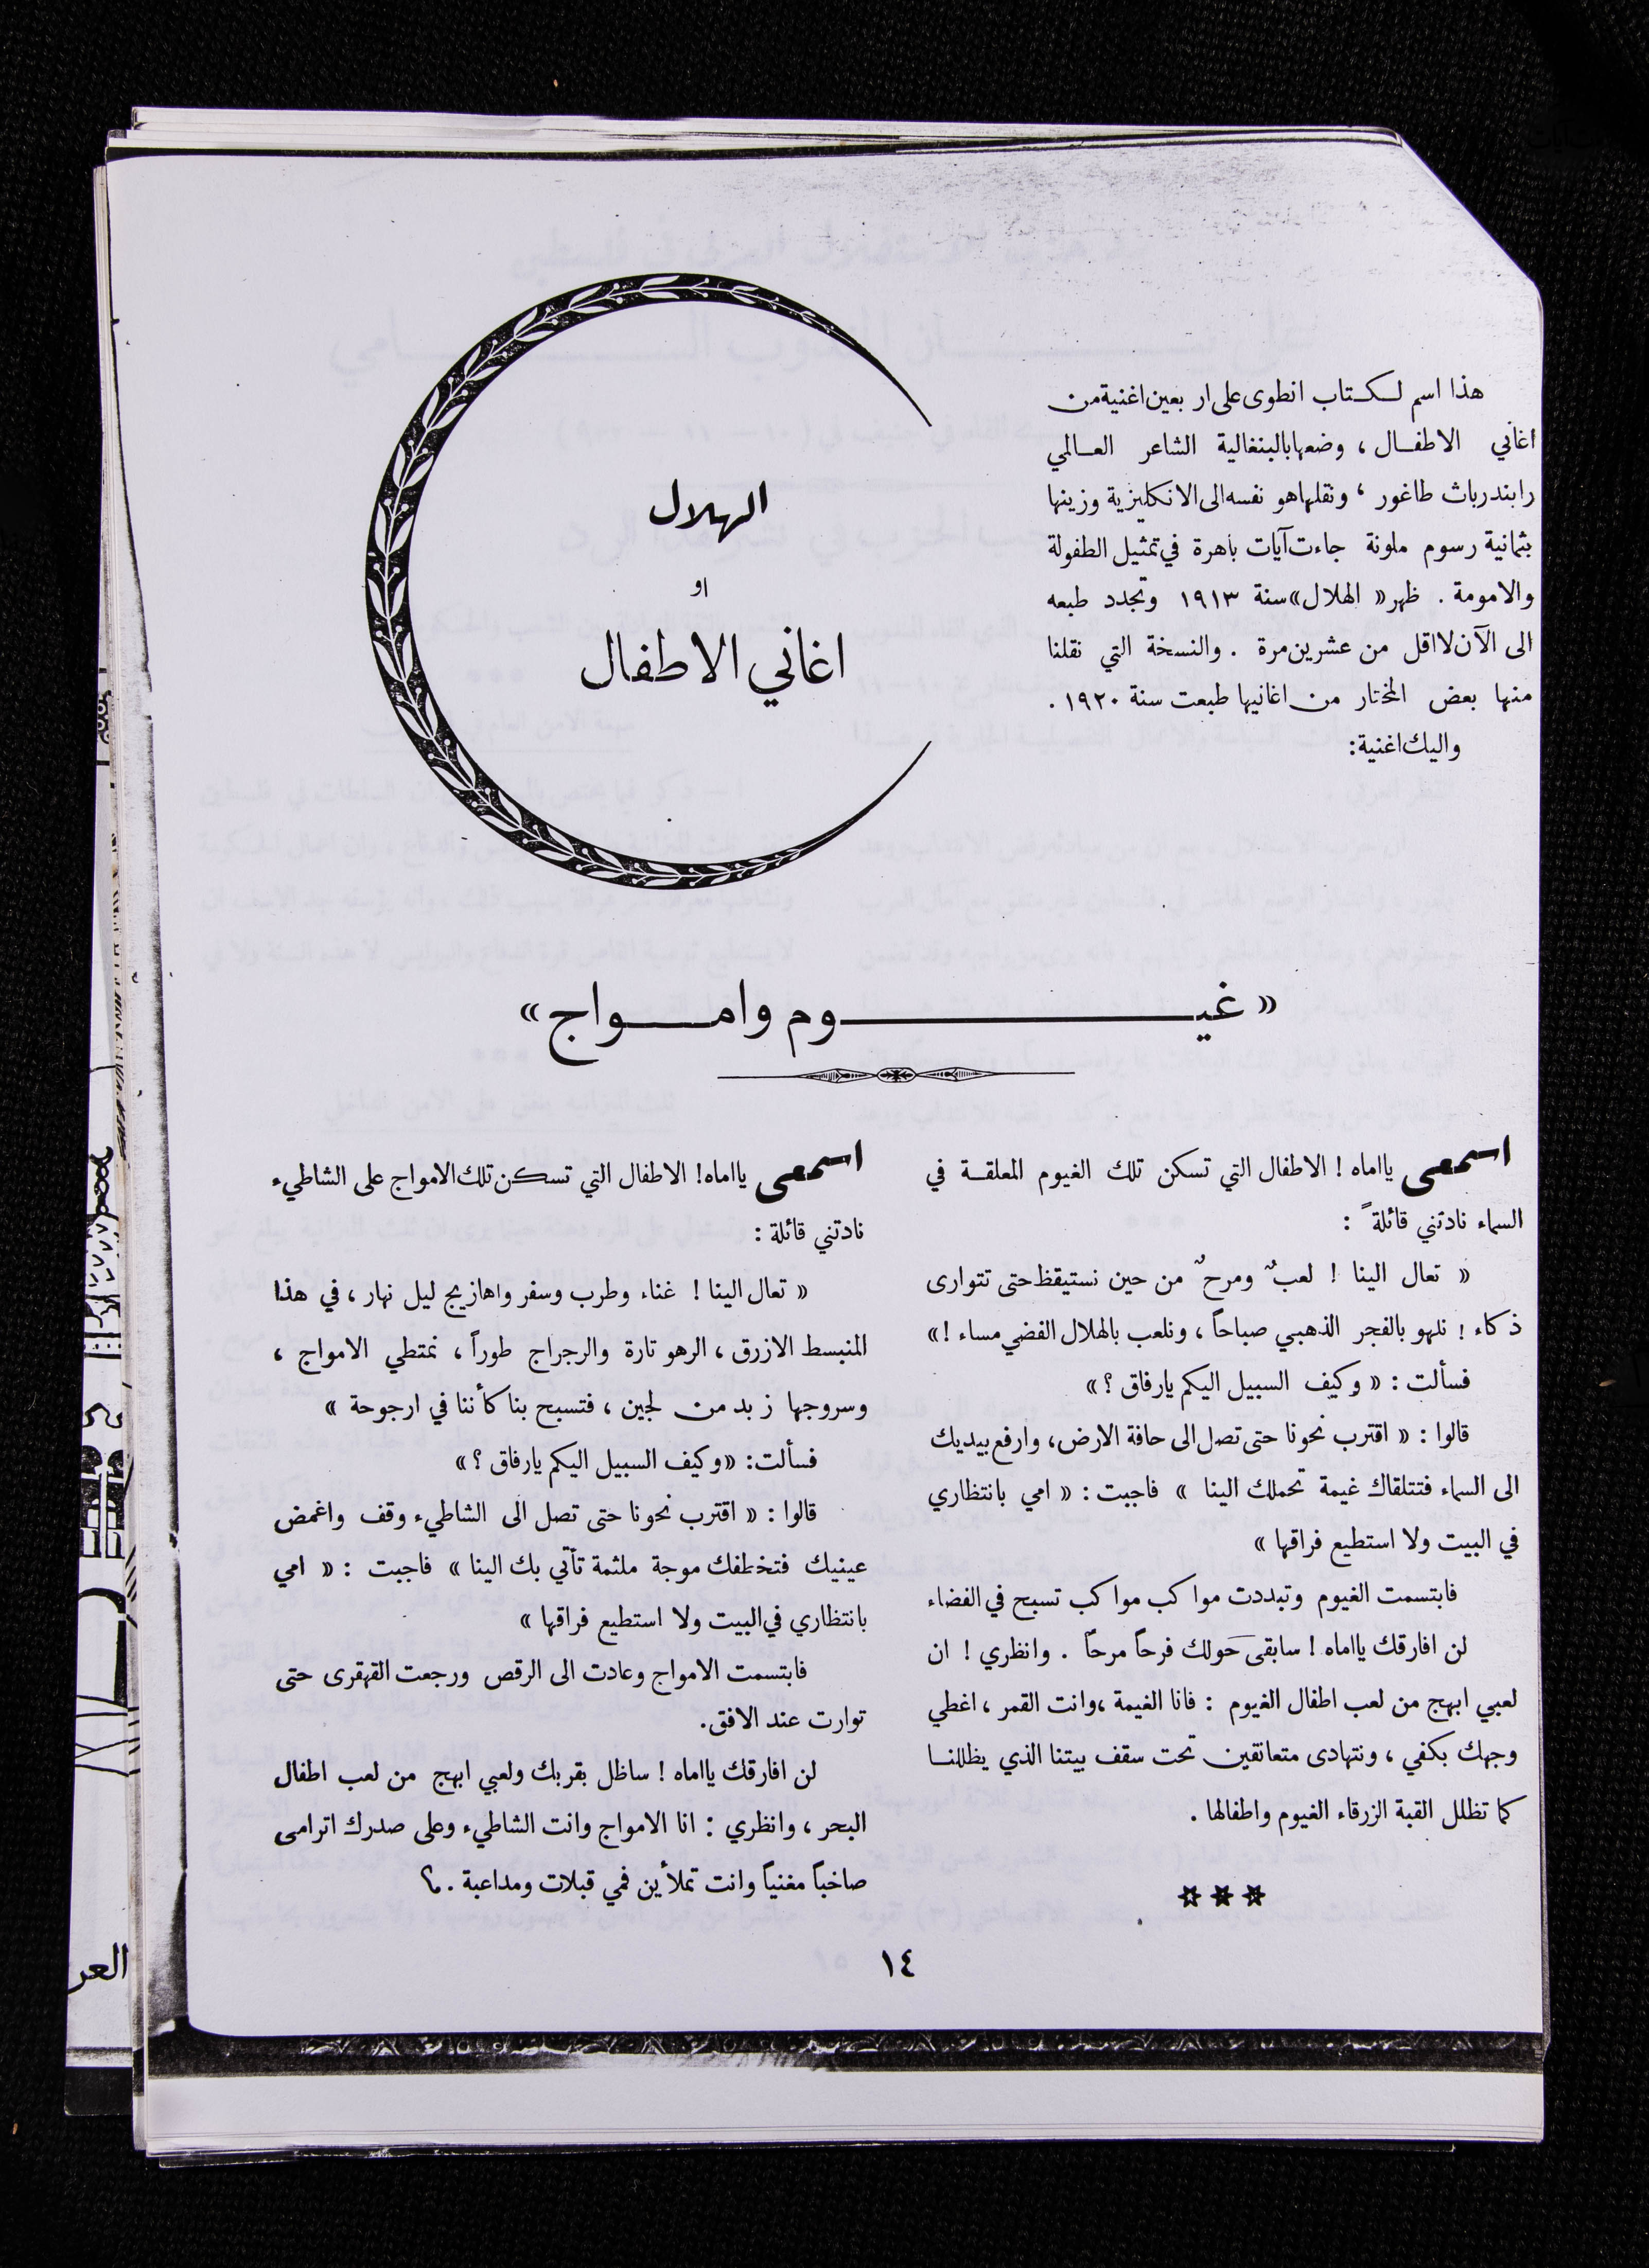 الهلال
او
اغاني الاطفال
هذا اسم لكتاب انطوى على اربعين اغنية من
اغاني الاطفال ، وضعها بالبنغالية الشاعر العالمي
رابندرباث طاغور ، ونقلها هو نفسه الى الانكليزية وزينها
بثمانية رسوم ملونة جاءت آيات باهرة في تمثيل الطفولة
والامومة . ظهر « الهلال » سنة ١٩١٣ وتجدد طبعه
الى الآن لااقل من عشرين مرة . والنسخة التي نقلنا
منها بعض المختار من اغانيها طبعت سنة ١٩٢٠ .
واليك اغنية :
« غيوم وامواج »
اسمعي يااماه ! الاطفال التي تسكن تلك الغيوم المعلقة في
السماء نادتني قائلةً :
« تعال الينا ! لعبٌ ومرحٌ من حين نستيقظ حتى تتوارى
ذكاء ! نلهو بالفجر الذهبي صباحاً ، ونلعب بالهلال الفضي مساء ! »
فسألت : « وكيف السبيل اليكم يارفاق ؟ »
قالوا : « اقترب نحونا حتى تصل الى حافة الارض، وارفع بيديك
الى السماء فتتلقاك غيمة تحملك الينا » فاجبت : « امي بانتظاري
في البيت ولا استطيع فراقها »
فابتسمت الغيوم وتبددت مواكب مواكب تسبح في الفضاء
لن افارقك يااماه ! سابقى حولك فرحاً مرحاً . وانظري ! ان
لعبي ابهج من لعب اطفال الغيوم : فانا الغيمة ،وانت القمر ، اغطي
وجهك بكفي ، ونتهادى متعانقين تحت سقف بيتنا الذي يظللنا
كما تظلل القبة الزرقاء الغيوم واطفالها .
***
اسمعي يااماه ! الاطفال التي تسكن تلك الامواج على الشاطيء
نادتني قائلة :
« تعال الينا ! غناء وطرب وسفر واهازيج ليل نهار ، في هذا
المنبسط الازرق ، الرهو تارة والرجراج طوراً ، نمتطي الامواج ،
وسروجها زبد من لجين ، فتسبح بنا كأننا في ارجوحة »
فسألت: «وكيف السبيل اليكم يارفاق ؟ »
قالوا : « اقترب نحونا حتى تصل الى الشاطيء وقف واغمض
عينيك فتخطفك موجة ملثمة تأتي بك الينا » فاجبت : « امي
بانتظاري في البيت ولا استطيع فراقها »
فابتسمت الامواج وعادت الى الرقص ورجعت القهقرى حتى
توارت عند الافق.
لن افارقك يااماه ! ساظل بقربك ولعبي ابهج من لعب اطفال
البحر ، وانظري : انا الامواج وانت الشاطيء وعلى صدرك اترامى
صاخباً مغنياً وانت تملأين فمي قبلات ومداعبة .
١٤
العر